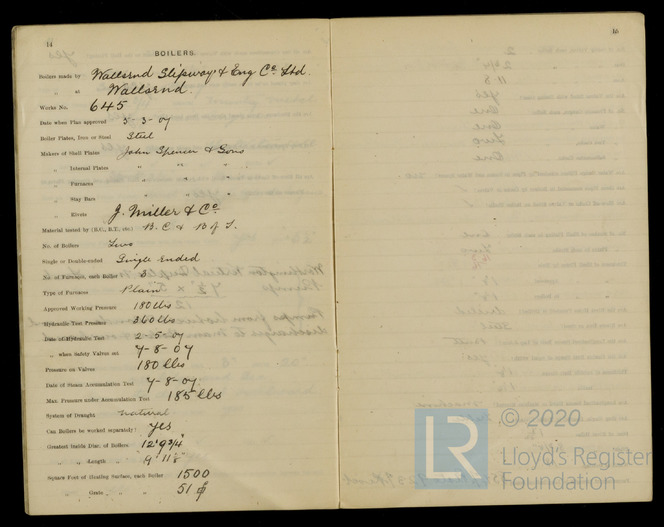 14
BOILERS.
Boilers made by Wallsend Slipway & Eng Co. Ltd.
" at Wallsend.
Works No. 645
Date when Plan approved 5-3-07
Boiler Plates, Iron or Steel Steel
Makers of Shell Plates John Spencer & Sons
" Internal Plates " " "
" Furnaces " " "
" Stay Bars " " "
" Rivets J. Miller & Co.
Material tested by (B.C., B.T., etc.) B.C & B of T.
No. of Boilers Two
Single or Double-ended Single Ended
No. of Furnaces, each Boiler 3
Type of Furnaces Plain
Approved Working Pressure 180 lbs
Hydraulic Test Pressure 360 lbs
Date of Hydraulic Test 2-5-07
" when Safety Valves set 7-8-07
Pressure on Valves 180 lbs
Date of Steam Accumulation Test 7-8-07
Max. Pressure under Accumulation Test 185 lbs
System of Draught natural
Can Boilers be worked separately? yes
Greatest Inside Diar. of Boilers 12' 9 3/4"
" " Length " 9' 11 1/8"
Square Feet of Heating Surface, each Boiler 1500
" " Grate " " 51
15
LR
© 2020
Lloyd's Register
Foundation